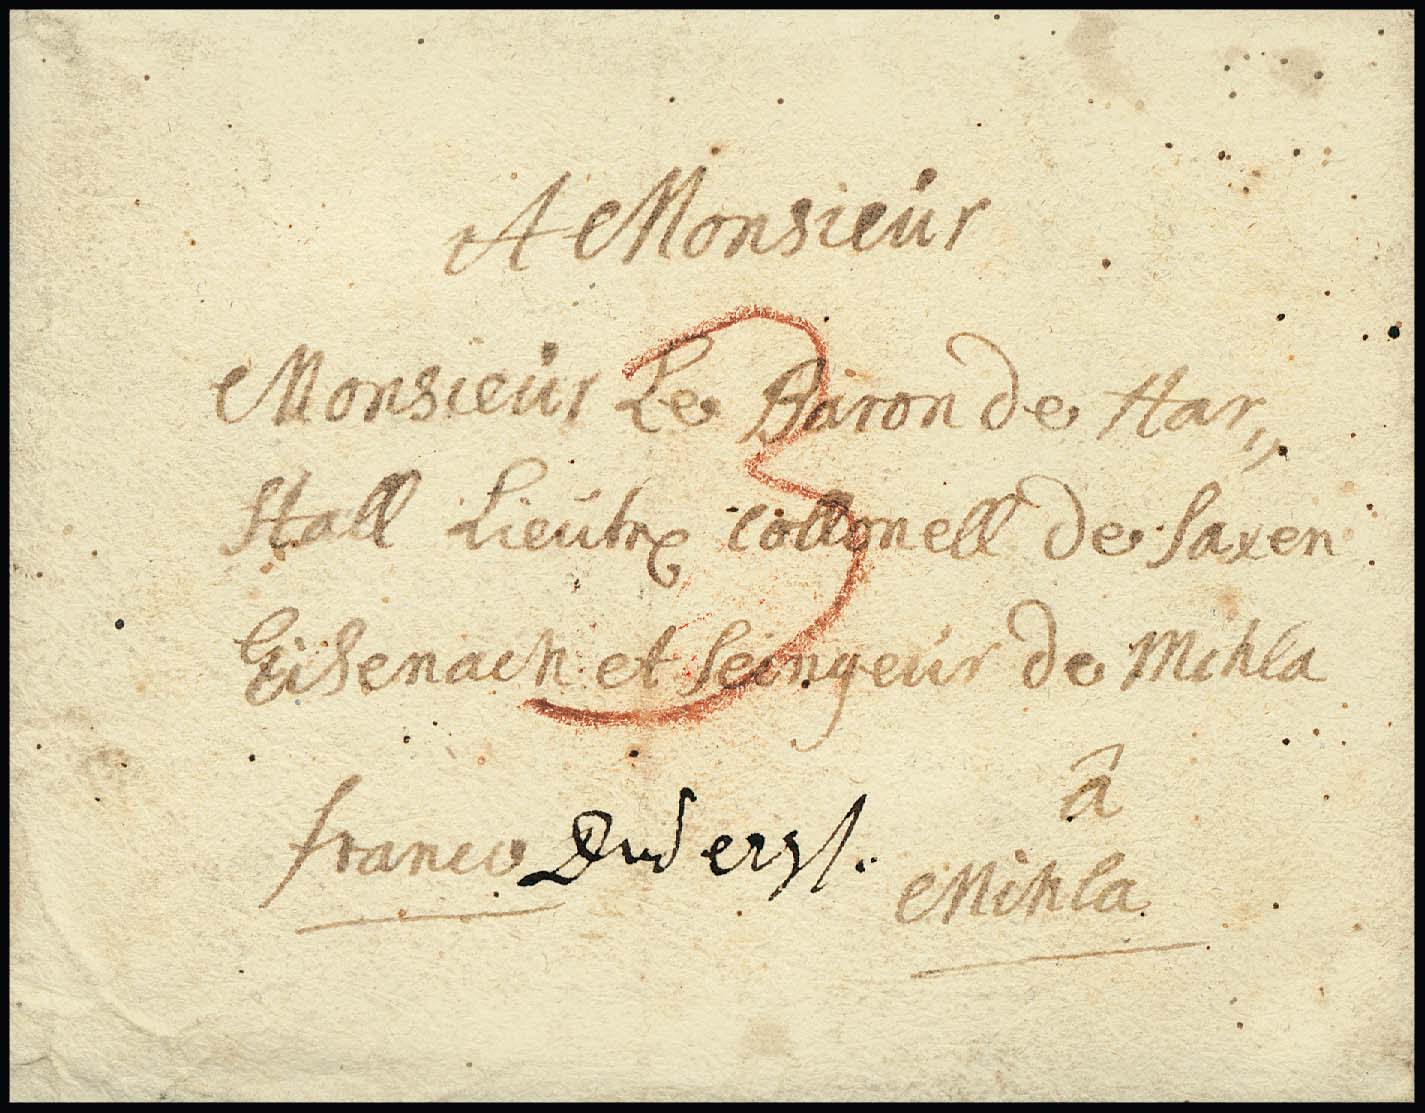 A Monsieur
3
Monsieur Le Baron de Har„
Stall Lieutn̄ Collonell de Saxen
Eisenach et Seingeur de Mihla
â
franco Duderst.
Mihla